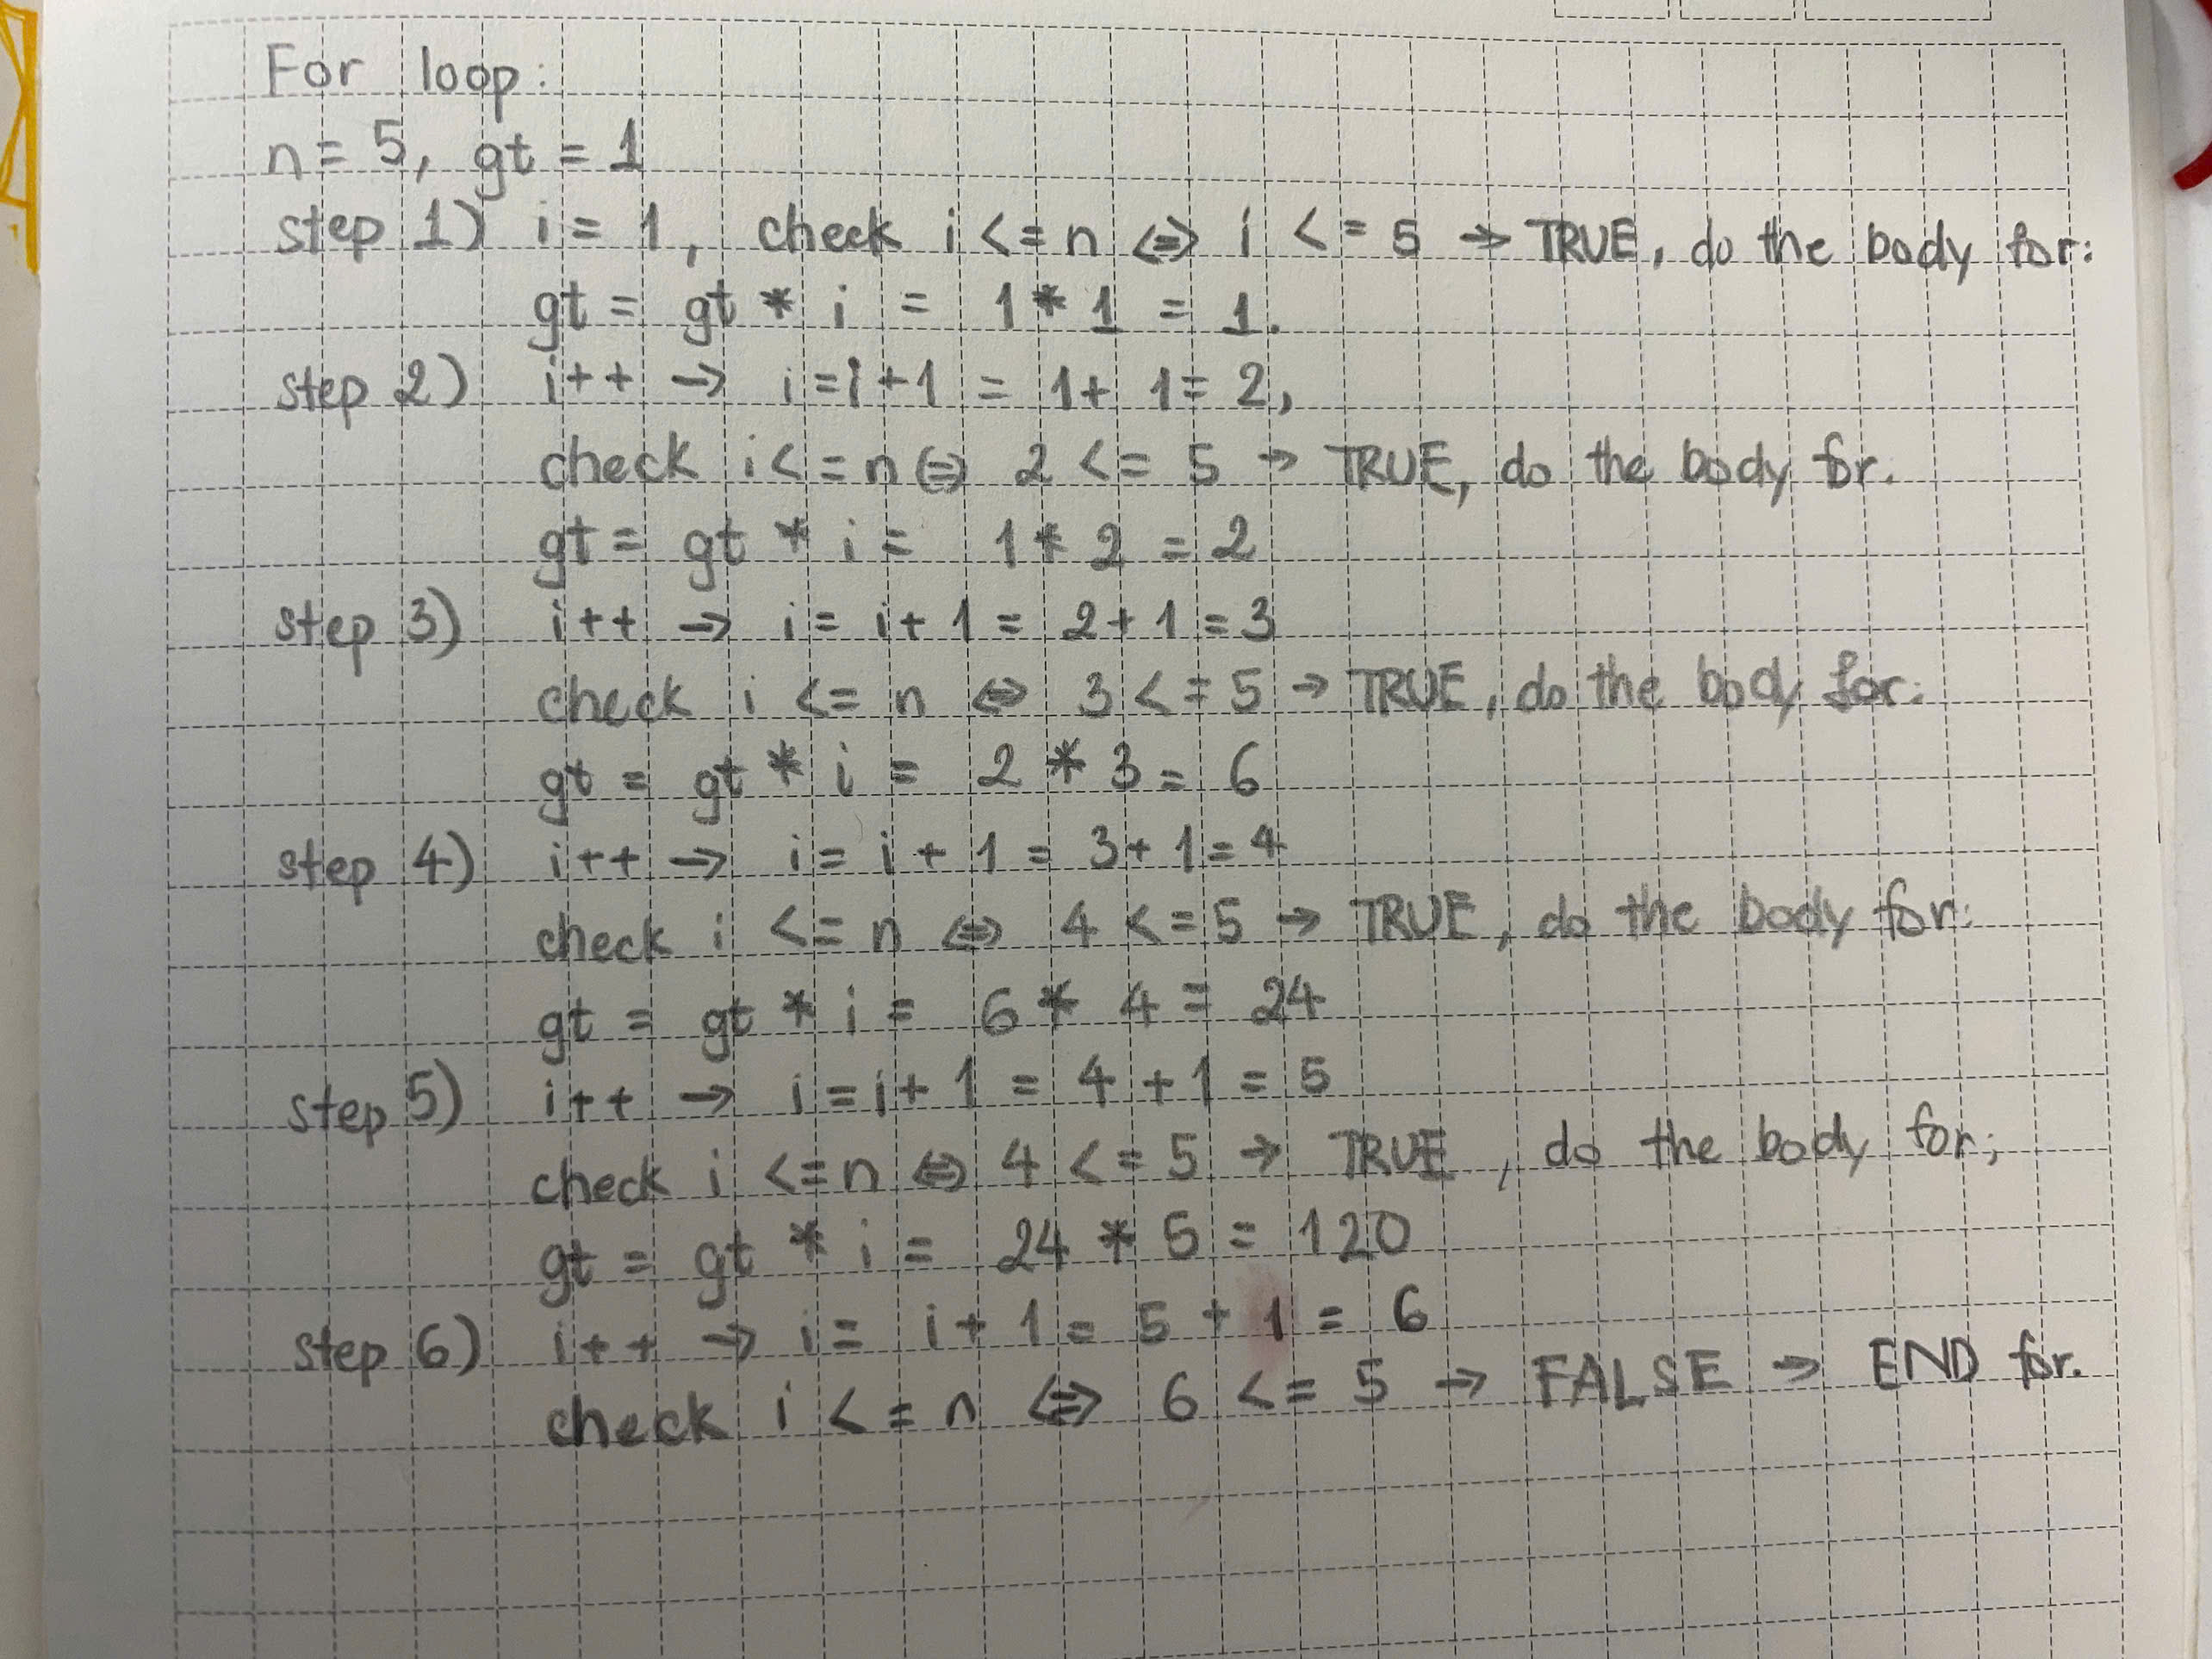 For loop:
n = 5, gt = 1
step 1) i = 1, check i <= n <=> i <= 5 → TRUE, do the body for:
gt = gt * i = 1 * 1 = 1.
step 2) i++ → i = i + 1 = 1 + 1 = 2,
check i <= n <=> 2 <= 5 → TRUE, do the body for.
gt = gt * i = 1 * 2 = 2
step 3) i++ → i = i + 1 = 2 + 1 = 3
check i <= n <=> 3 <= 5 → TRUE, do the body for:
gt = gt * i = 2 * 3 = 6
step 4) i++ → i = i + 1 = 3 + 1 = 4
check i <= n <=> 4 <= 5 → TRUE, do the body for:
gt = gt * i = 6 * 4 = 24
step 5) i++ → i = i + 1 = 4 + 1 = 5
check i <= n <=> 4 <= 5 → TRUE, do the body for;
gt = gt * i = 24 * 5 = 120
step 6) i++ → i = i + 1 = 5 + 1 = 6
check i <= n <=> 6 <= 5 → FALSE → END for.